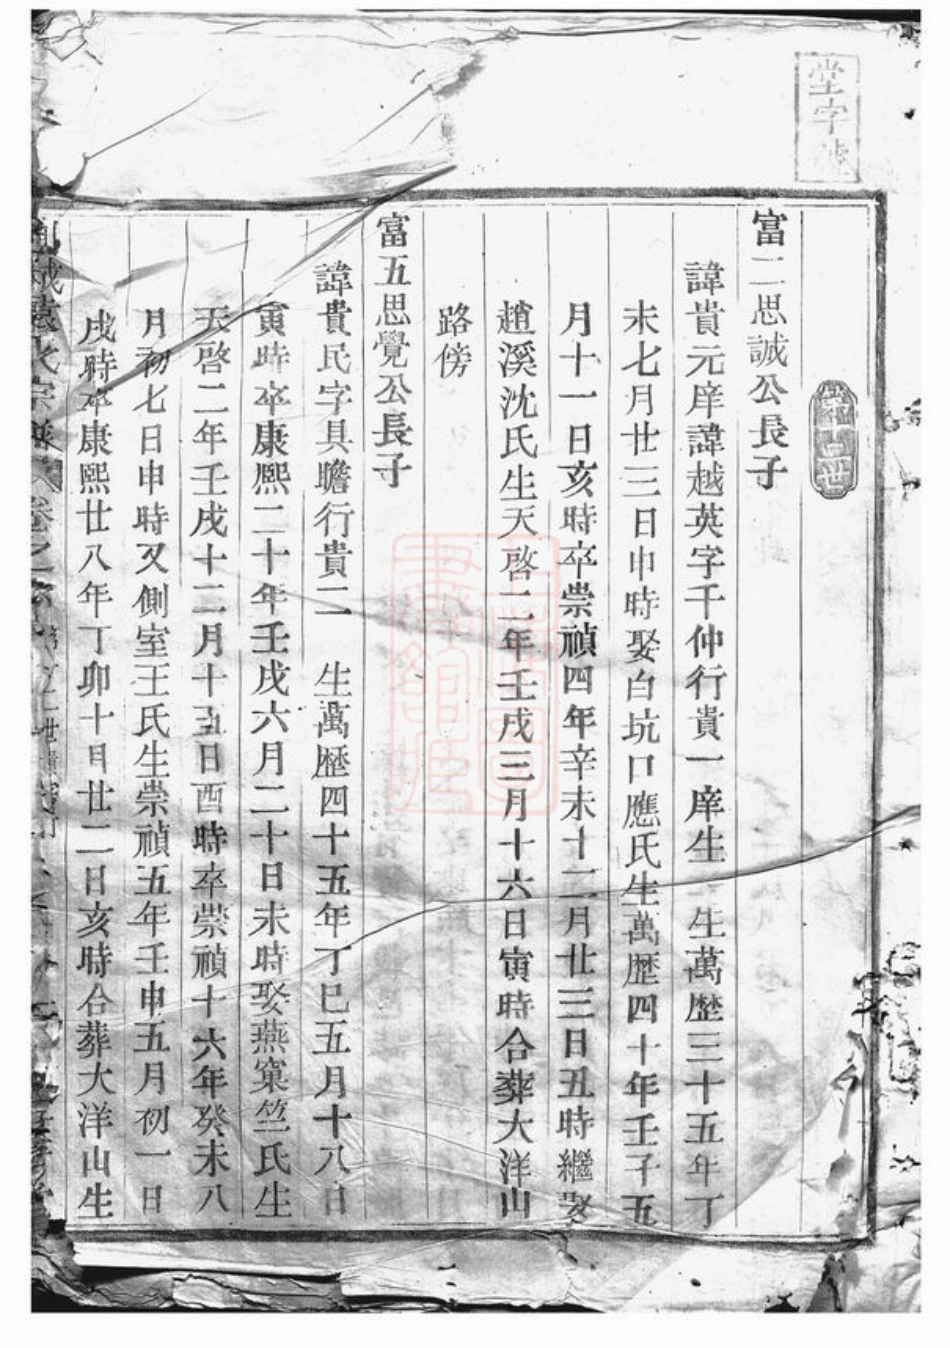 堂字號
第廿世
富二思誠公長子
諱貴元庠諱越英字千仲行貴一庠生 生萬歷三十五年丁
未七月廿三日申時娶白坑口應氏生萬歷四十年壬子五
月十一日亥時卒崇禎四年辛未十二月廿三日丑時繼娶
趙溪沈氏生天啓二年壬戌三月十六日寅時合葬大洋山
路傍
富五思覺公長子
諱貴民字具瞻行貴二 生萬歷四十五年丁巳五月十八日
寅時卒康熙二十年壬戌六月二十日未時娶燕窠竺氏生
天啓二年壬戌十二月十五日酉時卒崇禎十六年癸未八
月初七日申時又側室王氏生崇禎五年壬申五月初一日
戌時卒康熙廿八年丁卯十月廿二日亥時合葬大洋山生
氏宗譜 卷之